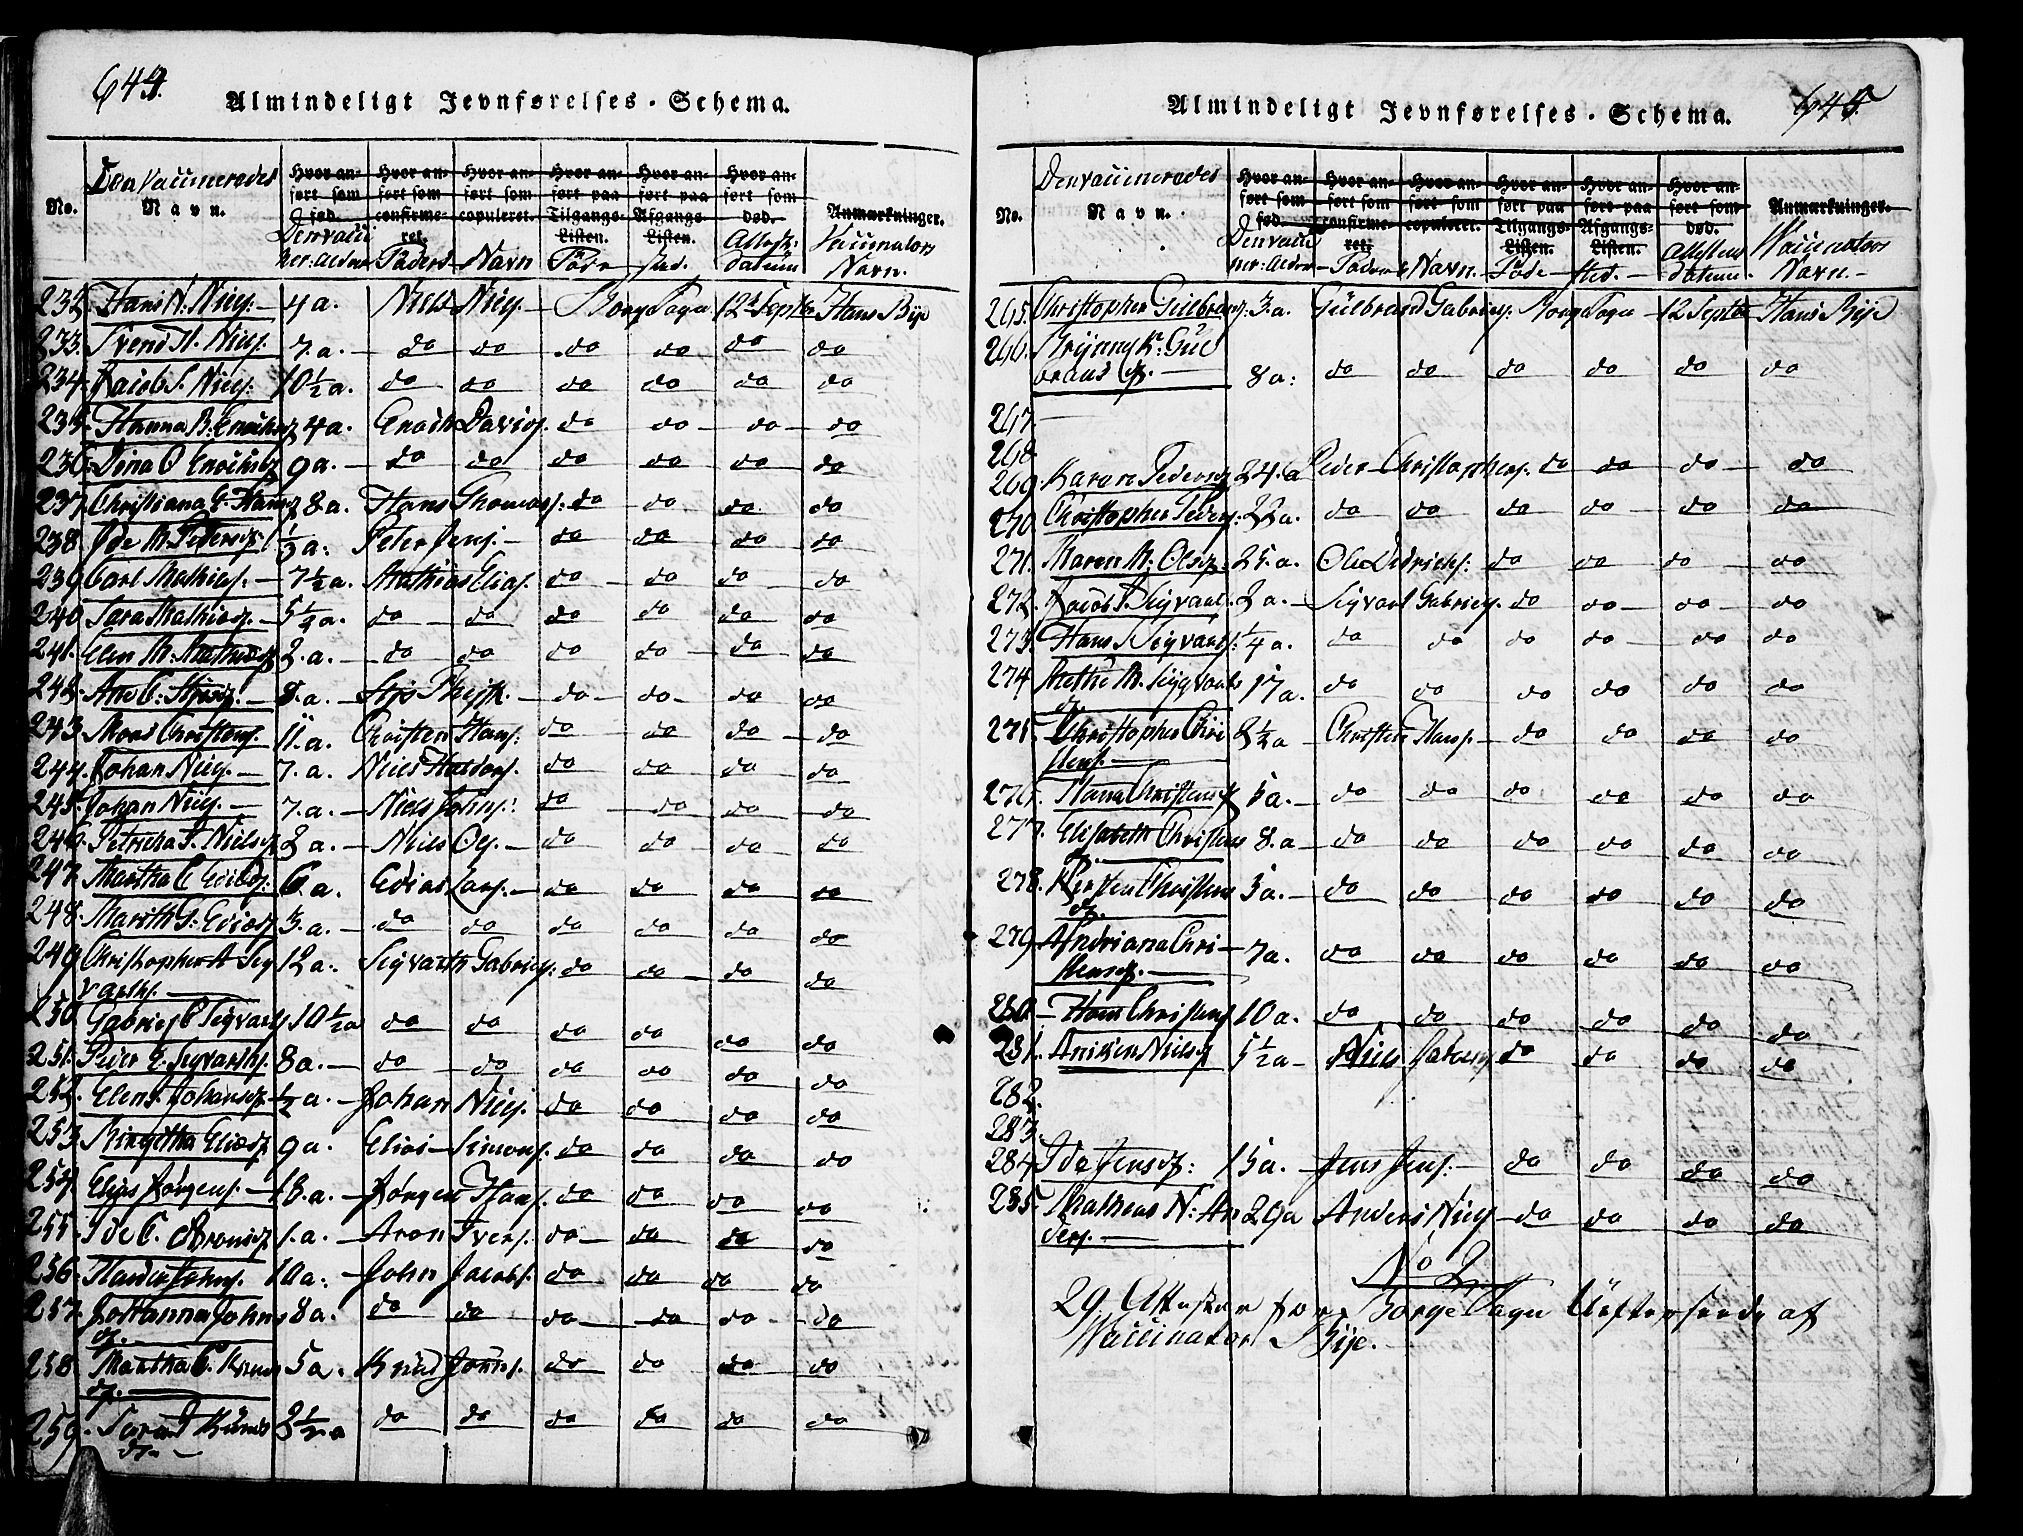 644.
Almindeligt Jevnførelses-Schema.
No. Den Vaccineredes Navn. Hvor anført som fød. Hvor anført som confirmeret. Hvor anført som copuleret. Hvor anført paa Tilgangs-Listen. Hvor anført paa Afgangs-Listen. Hvor anført som død. Anmærkninger.
Den vacciner: Alder Fäders Navn Föde sted. Attest: datum Vaccinators Navn.
232. Hans N. Niels. 4 a. Niels Niels. Borge Sogn 12t Septbr Hans Bije
233. Svend H. Niels. 7 a. do do do do do do
234. Jacob S. Niels. 10½ a. do do do do do do
235. Hanna B. Enochsd. 4 a. Enoch Davids. do do do do
236. Dina C. Enochsd. 9 a. do do do do do do
237. Christiana E. Hansd. 8 a. Hans Thomas. do do do do
238. Ide M. Pedersd. ⅓ a. Peter Jens. do do do do
239. Carl Mathias. 7½ a. Mathias Elias. do do do do
240. Sara Mathiasd. 5¼ a. do do do do do do
241. Elen M. Mathiasd. 2 a. do do do do do do
242. Ane C. 8 a. do do do do
243. Mons Christens. 11 a. Christen Hans. do do do do
244. Johan Niels. 7 a. Niels do do do do
245. Johan Niels. 7 a. Niels Johns. do do do do
246. Nielsd. 2 a. Niels Ols. do do do do
247. Martha C. 6 a. Lars. do do do do
248. Marith do do do do do do
249. Christopher A. Sigvarths. 12 a. Sigvarth Gabriels. do do do do
250. Gabriel C. Sigvarths. 10½ a do do do do do do
251. Peder E. Sigvarths. 8 a. do do do do do do
252. Elen Johansd. ½ a. Johan Niels. do do do do
253. Birgitha Eliasd. 9 a. Elias Simons. do do do do
254. Elias Jørgens. 18 a. Jørgen Hans. do do do do
255. Ide C. Aronsd. 1 a. Aron Ivers. do do do do
256. Johns. 10 a. John Jacobs. do do do do
257. Johanna Johnsd. 8 a. do do do do do do
258. Martha C. Knudsd. 5 a. Knud Johns. do do do do
259. Knudsd. 2½ a do do do do do do
645.
Almindeligt Jevnførelses-Schema.
No. Den vaccineredes Navn. Hvor anført som fød. Hvor anført som confirmeret. Hvor anført som copuleret. Hvor anført paa Tilgangs-Listen. Hvor anført paa Afgangs-Listen. Hvor anført som død. Anmærkninger.
Den vacciner: Alder Fadere Navn. Föde sted. Attestens datum Vaccinators Navn.
265. Christopher Gulbrands. 3 a. Gulbrand Gabriels. Borge Sogn 12 Septbr Hans Bije
266. Gulbrandsd. 8 a: do do do do do do
267.
268.
269. Karen Pedersd. 24 a Peder Christophers. do do do do
270. Christopher Peders. 22 a. do do do do do do
271. Maren M. Olsd. 25 a. Ole Didrichs. do do do do
272. Jacob P. Sigvarts. 2 a. Sigvart Gabriels. do do do do
273. Hans Sigvarts. ¼ a. do do do do do do
274. Methe M. Sigvartsd. 17 a. do do do do do do
275. Christopher Christens. 2½ a Christen Hans. do do do do
276. Hanna Christensd. 5 a. do do do do do do
277. Elisabeth Christensd. 8 a. do do do do do do
278. Kirsten Christensd. 5 a. do do do do do do
279. Andriana Christensd. 7 a. do do do do do do
280. Hans Christens. 10 a. do do do do do do
281. Aniken Nielsd. 5½ a Niels do do do do
282.
283.
284. Ide Jensd. 15 a. Jens Jens. do do do do
285. Mathias N. Anders. 29 a Anders Niels. do do do do
No 2.
29. Attester for Borge Sogn Udstædde af
Vaccinator Bije.